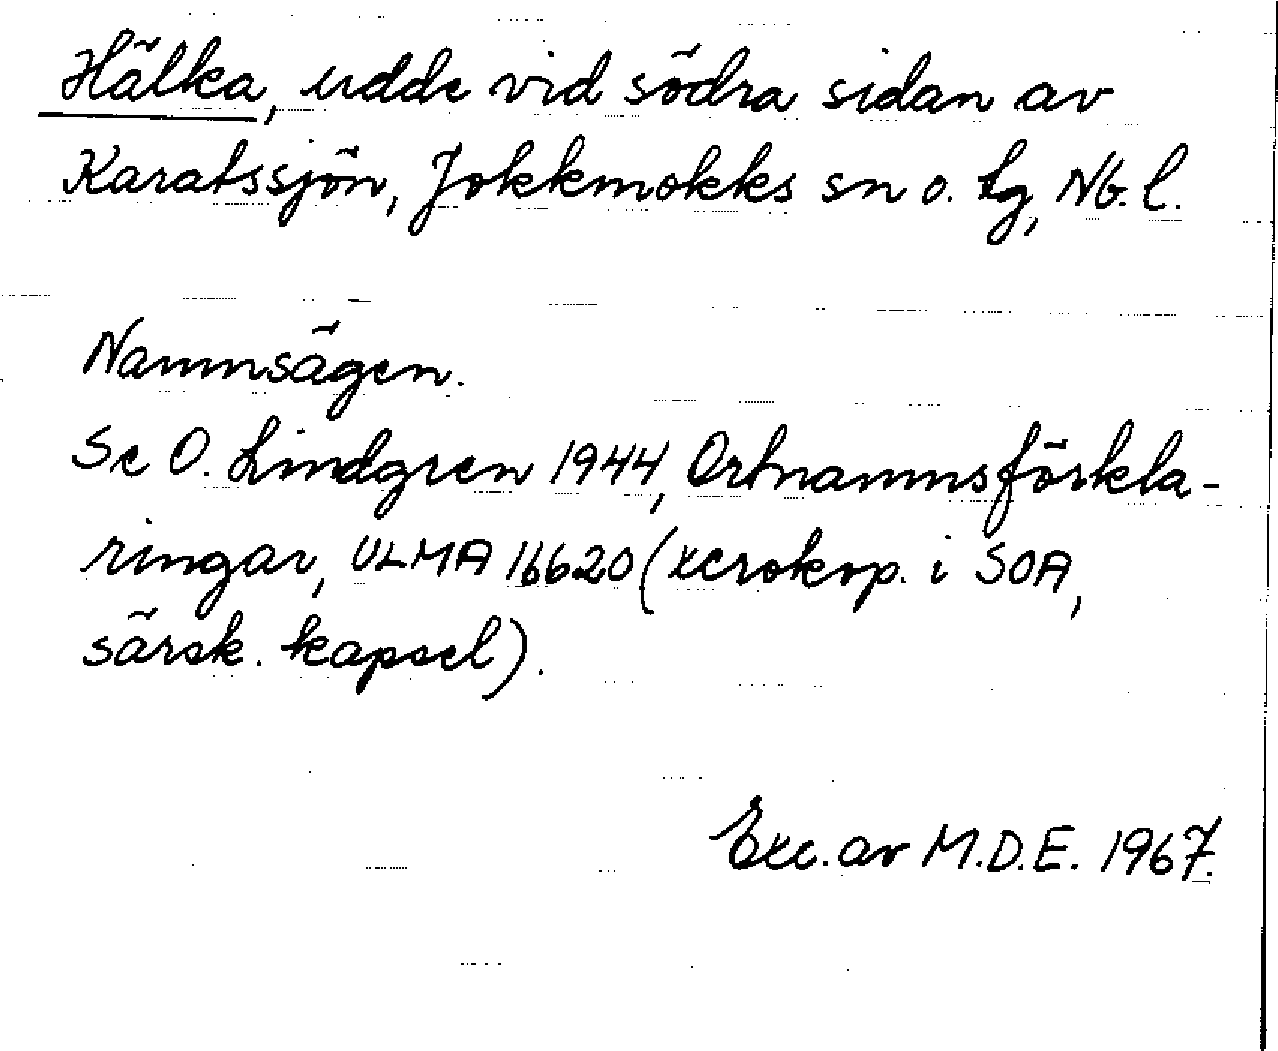 Hälka, udde vid södra sidan av
Karatssjön, Jokkmokks sn o. tg, Nb. l.
Namnsägen.
Se O. Lindgren 1944, Ortnamnsförkla-
ringar, ULMA 16620 (xerokop. i SOA,
särsk. kapsel).
Exc. av M.D.E. 1967.